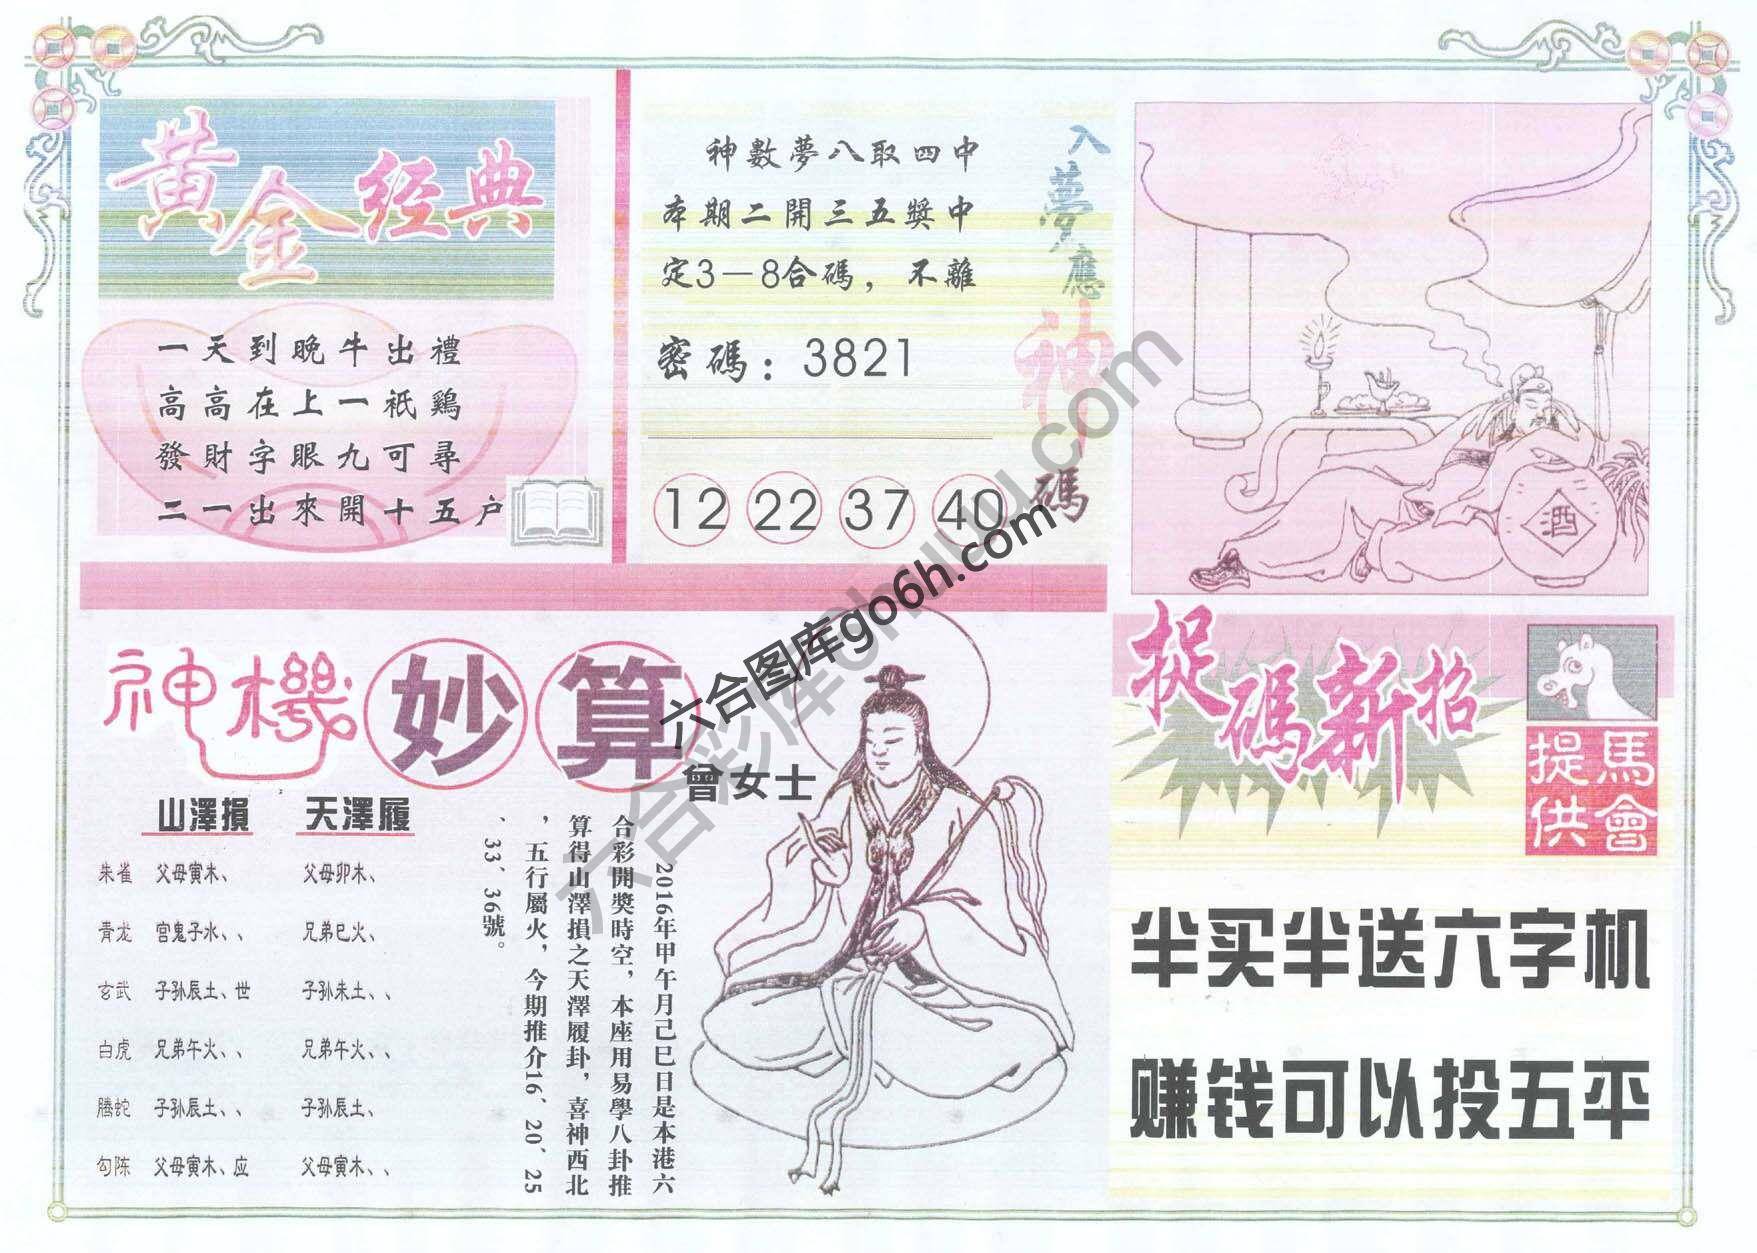 黄金经典
一天到晚牛出禮
高高在上一衹鷄
發財字眼九可尋
二一出來開十五户
神數夢八取四中
本期二開三五獎中
定3－8合碼，不離
密碼：3821
12 22 37 40
入夢應神碼
酒
神機妙算
曾女士
山澤損 天澤履
朱雀 父母寅木、 父母卯木、
青龙 官鬼子水、、 兄弟巳火、
玄武 子孙辰土、世 子孙未土、、
白虎 兄弟午火、、 兄弟午火、、
腾蛇 子孙辰土、、 子孙辰土、
勾陈 父母寅木、应 父母寅木、、
2016年甲午月己巳日是本港六
合彩開獎時空，本座用易學八卦推
算得山澤損之天澤履卦，喜神西北
，五行屬火，今期推介16、20、25
、33、36號。
捉碼新招
馬會
提供
半买半送六字机
赚钱可以投五平
六合图库go6h.com